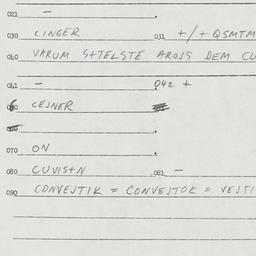 021 —
030 CINGER 031 +/+ QSMTM
040 VARUM S+TELSTE AROJS DEM CU
041 — 042 +
CEJNER
070 ON
080 CUVIS+N 081 —
090 CONVEJTIK = CONVEJTOK = VEJTI